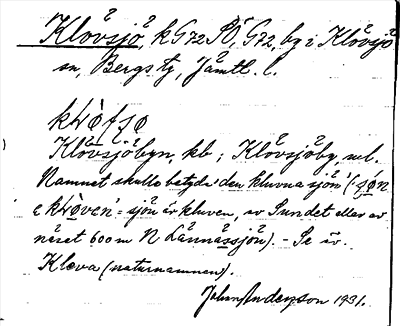 Klövsjö, k G72 SÖ, G72, by i Klövsjö
sn, Bergs tg, Jämtl. l.
kɫøfsjø
Klövsjöbyn, kb; Klövsjöby, vel.
Namnet skulle betyda 'den kluvna sjön' ('sjøn
e kɫøven' = sjön är kluven, av Sundet eller av
näset 600 m N Lännässjön). - Se äv.
Kleva (naturnamnen).
John Anderzon 1931.